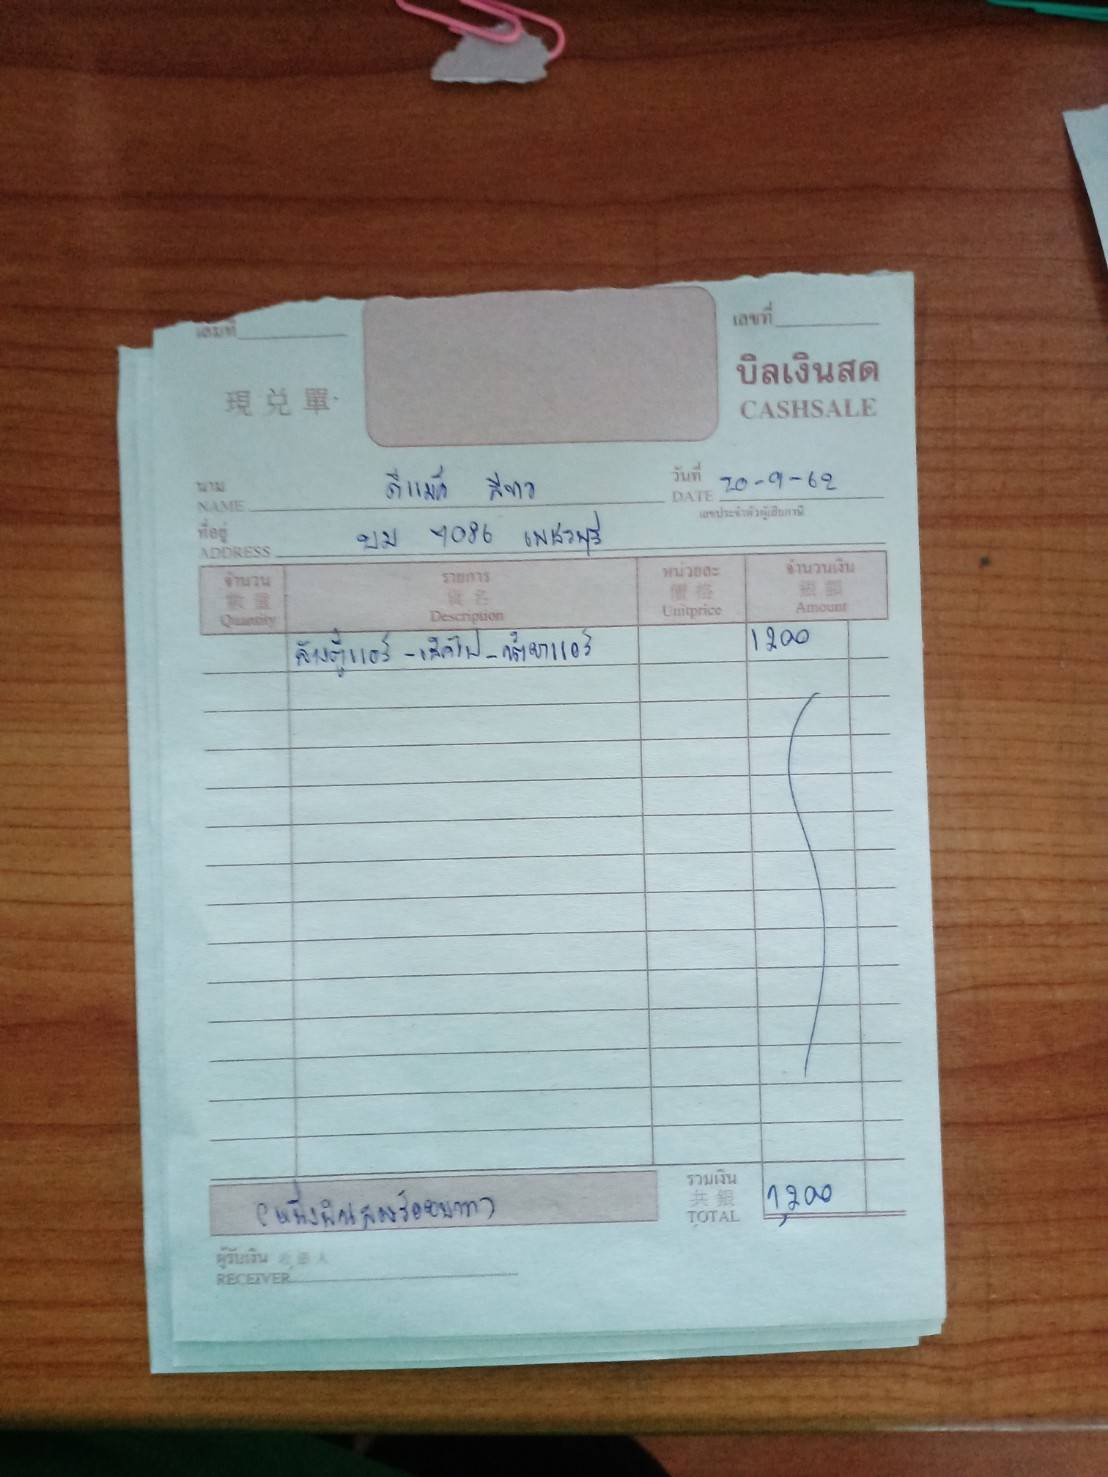 เล่มที่
เลขที่
現兌單
บิลเงินสด
CASHSALE
นาม
NAME ดีแม็ค สีขาว
วันที่
DATE 20-9-62
เลขประจำตัวผู้เสียภาษี
ที่อยู่
ADDRESS บม 7086 เพชรบุรี
จำนวน รายการ หน่วยละ จำนวนเงิน
數量 貨名 價格 銀額
Quantity Description Unitprice Amount
ล้างตู้แอร์ -เช็คไฟ - 1200
(หนึ่งพันสองร้อยบาท)
รวมเงิน
共銀
TOTAL 1,200
ผู้รับเงิน
RECEIVER